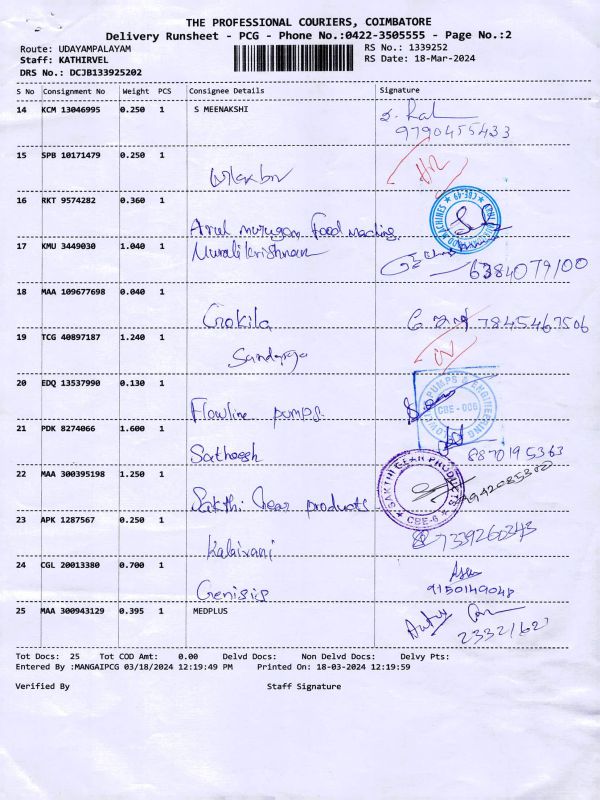 THE PROFESSIONAL COURIERS, COIMBATORE
Delivery Runsheet - PCG - Phone No.:0422-3505555 - Page No.:2
Route: UDAYAMPALAYAM RS No.: 1339252
Staff: KATHIRVEL RS Date: 18-Mar-2024
DRS No.: DCJB133925202
S No Consignment No Weight PCS Consignee Details Signature
14 KCM 13046995 0.250 1 S MEENAKSHI
9790455433
15 SPB 10171479 0.250 1
16 RKT 9574282 0.360 1
Arul murugan Food machine
CBE-49
17 KMU 3449030 1.040 1 Muralikrishnan
6384079100
18 MAA 109677698 0.040 1
Gokila 7845467506
19 TCG 40897187 1.240 1
20 EDQ 13537990 0.130 1
Flowline pumps
PUMPS & ENGINEERING
CBE - 006
21 PDK 8274066 1.600 1
Satheesh 8870195363
22 MAA 300395198 1.250 1
Sakthi Gear products
SAKTHI GEAR PRODUCTS
CBE-6
23 APK 1287567 0.250 1
Kalaivani 7339260343
24 CGL 20013380 0.700 1
Genisis 9150149048
25 MAA 300943129 0.395 1 MEDPLUS
Tot Docs: 25 Tot COD Amt: 0.00 Delvd Docs: Non Delvd Docs: Delvy Pts:
Entered By :MANGAIPCG 03/18/2024 12:19:49 PM Printed On: 18-03-2024 12:19:59
Verified By Staff Signature